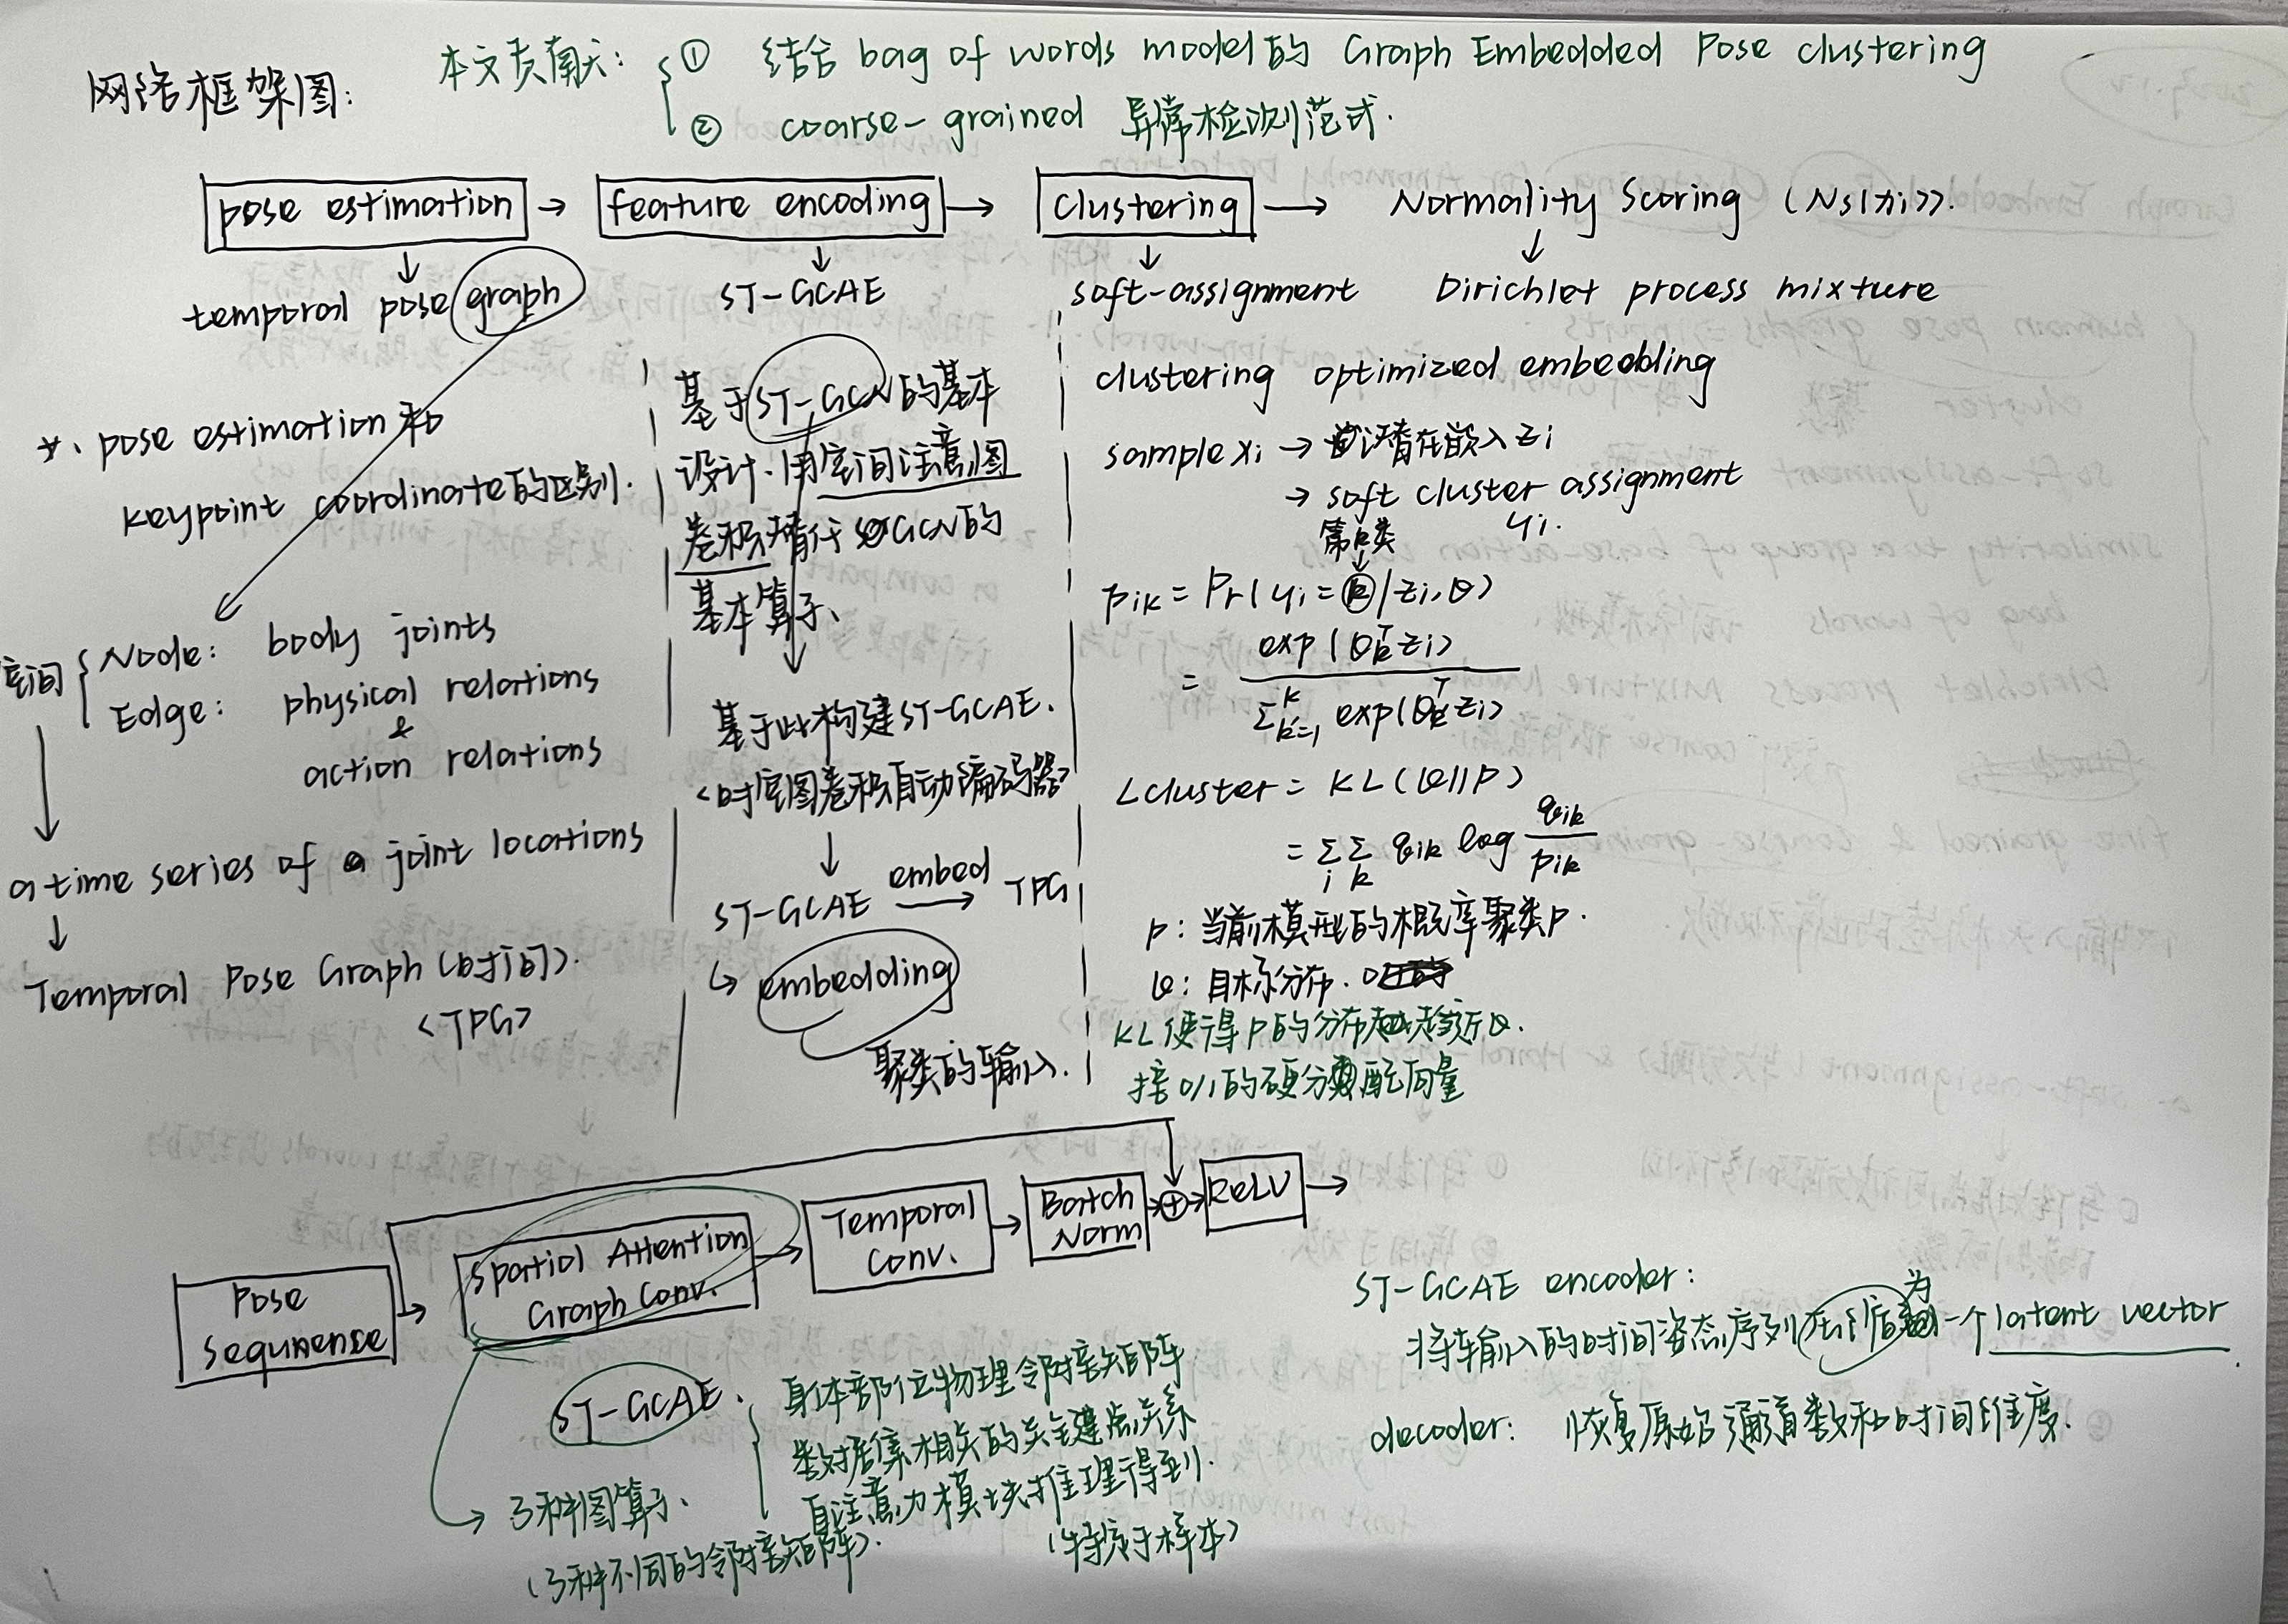 网络框架图:
本文贡献: ① 结合 bag of words model的 Graph Embedded Pose clustering
② coarse-grained 异常检测范式.
pose estimation → feature encoding → clustering → Normality Scoring (Ns(xi)).
temporal pose graph
ST-GCAE
soft-assignment
Dirichlet process mixture
pose estimation 和
keypoint coordinate的区别.
空间 { Node: body joints
Edge: physical relations
&
action relations
a time series of a joint locations
Temporal Pose Graph (时间).
<TPG>
基于ST-GCN的基本
设计.用空间注意图
卷积替代 GCN的
基本算子、
基于此构建ST-GCAE.
<时空图卷积自动编码器>
ST-GCAE embed→ TPG
↳ embedding
聚类的输入.
clustering optimized embedding
sample xi → 潜在嵌入 zi
→ soft cluster assignment
yi.
第k类
pik = Pr(yi = k | zi, Θ)
= exp(θkᵀzi) / Σk'=1^K exp(θk'ᵀzi)
Lcluster = KL(Q||P)
= Σi Σk qik log qik/pik
P: 当前模型的概率聚类P.
Q: 目标分布.
KL使得P的分布趋近Q.
接0/1的硬分配向量
Pose Sequnense → Spatial Attention Graph Conv. → Temporal Conv. → Batch Norm → ⊕ → ReLU →
ST-GCAE encoder:
将输入的时间姿态序列压缩为一个latent vector.
decoder: 恢复原始通道数和时间维度.
ST-GCAE. { 身体部位物理邻接矩阵
数据集相关的关键点关系
自注意力模块推理得到.
(特定于样本)
→ 3种图算子、
(3种不同的邻接矩阵).